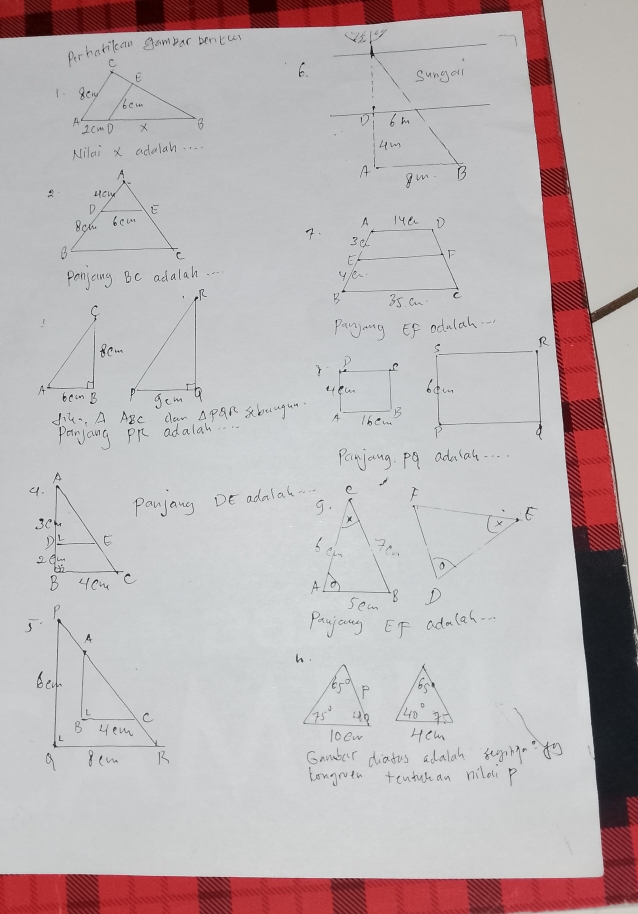 Perhatikan gambar berikut
1.
C
E
8cm
6cm
A
2cm
D
x
B
Nilai x adalah ....
2.
A
4cm
D
E
8cm
6cm
B
C
Panjang BC adalah ...
R
C
8cm
A
6cm
B
P
9cm
Q
Jika Δ ABC dan ΔPQR sebangun.
Panjang PR adalah ....
4.
A
Panjang DE adalah ...
3cm
D
E
2cm
B
4cm
C
5.
P
A
6cm
B
4cm
C
Q
8cm
R
6.
Sungai
D
6m
4m
A
8m
B
7.
A
14cm
D
3cm
E
F
4cm
B
35cm
C
Panjang EF adalah ...
D
S
R
4cm
6cm
A
16cm
B
P
Q
Panjang PQ adalah ....
9.
C
F
x
E
x
6cm
7cm
A
o
B
o
D
5cm
Panjang EF adalah ...
65°
P
65
75°
40°
10cm
4cm
Gambar diatas adalah segitiga yg
kongruen tentukan nilai P